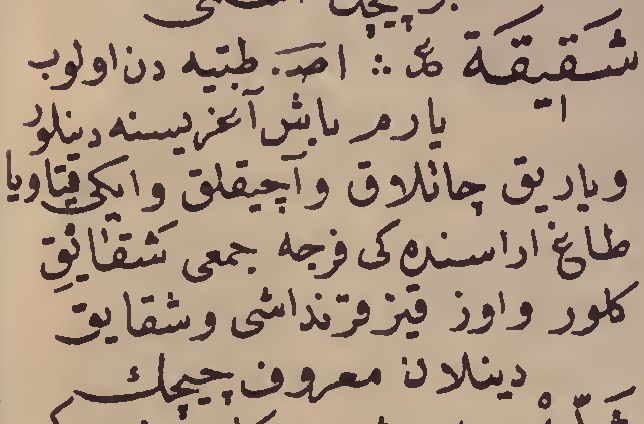 شَقِيقَة ع ∴ اصـ. طبّيه دن اولوب
يارم باش آغريسنه دينلور
وياريق چاتلاق وآچيقلق وايكى قيا ويا
طاغ اراسنده كى فرجه جمعى شَقَائِق
كلور واوز قيز قرنداشى وشقايق
دينلان معروف چيچك